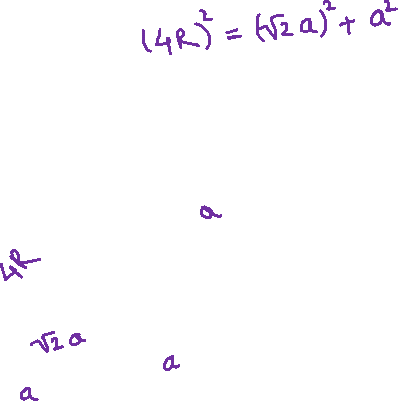 (4R)² = (√2 a)² + a²
a
4R
√2 a
a
a